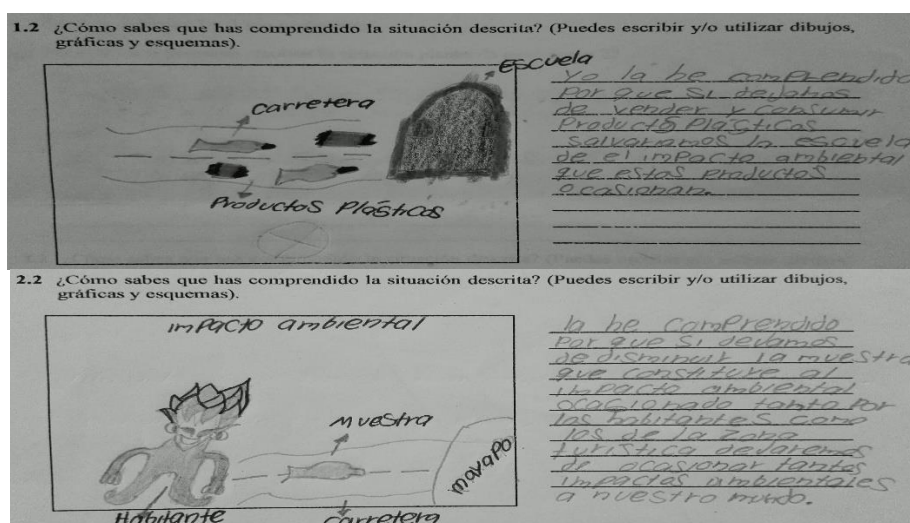 1.2 ¿Cómo sabes que has comprendido la situación descrita? (Puedes escribir y/o utilizar dibujos,
gráficas y esquemas).
Escuela
carretera
Productos Plásticos
Yo la he comprendido
Por que si dejamos
de vender y consumir
Productos Plásticos
salvaríamos la escuela
de el impacto ambiental
que estas productos
ocasionan.
2.2 ¿Cómo sabes que has comprendido la situación descrita? (Puedes escribir y/o utilizar dibujos,
gráficas y esquemas).
impacto ambiental
muestra
mayapo
Habitante
carretera
la he comprendido
Por que si devamos
de disminuir la muestra
que constituye al
impacto ambiental
ocacionado tanto Por
los habitantes como
los de la zona
turística devaremos
de ocasionar tantos
impactos ambientales
a nuestro mundo.